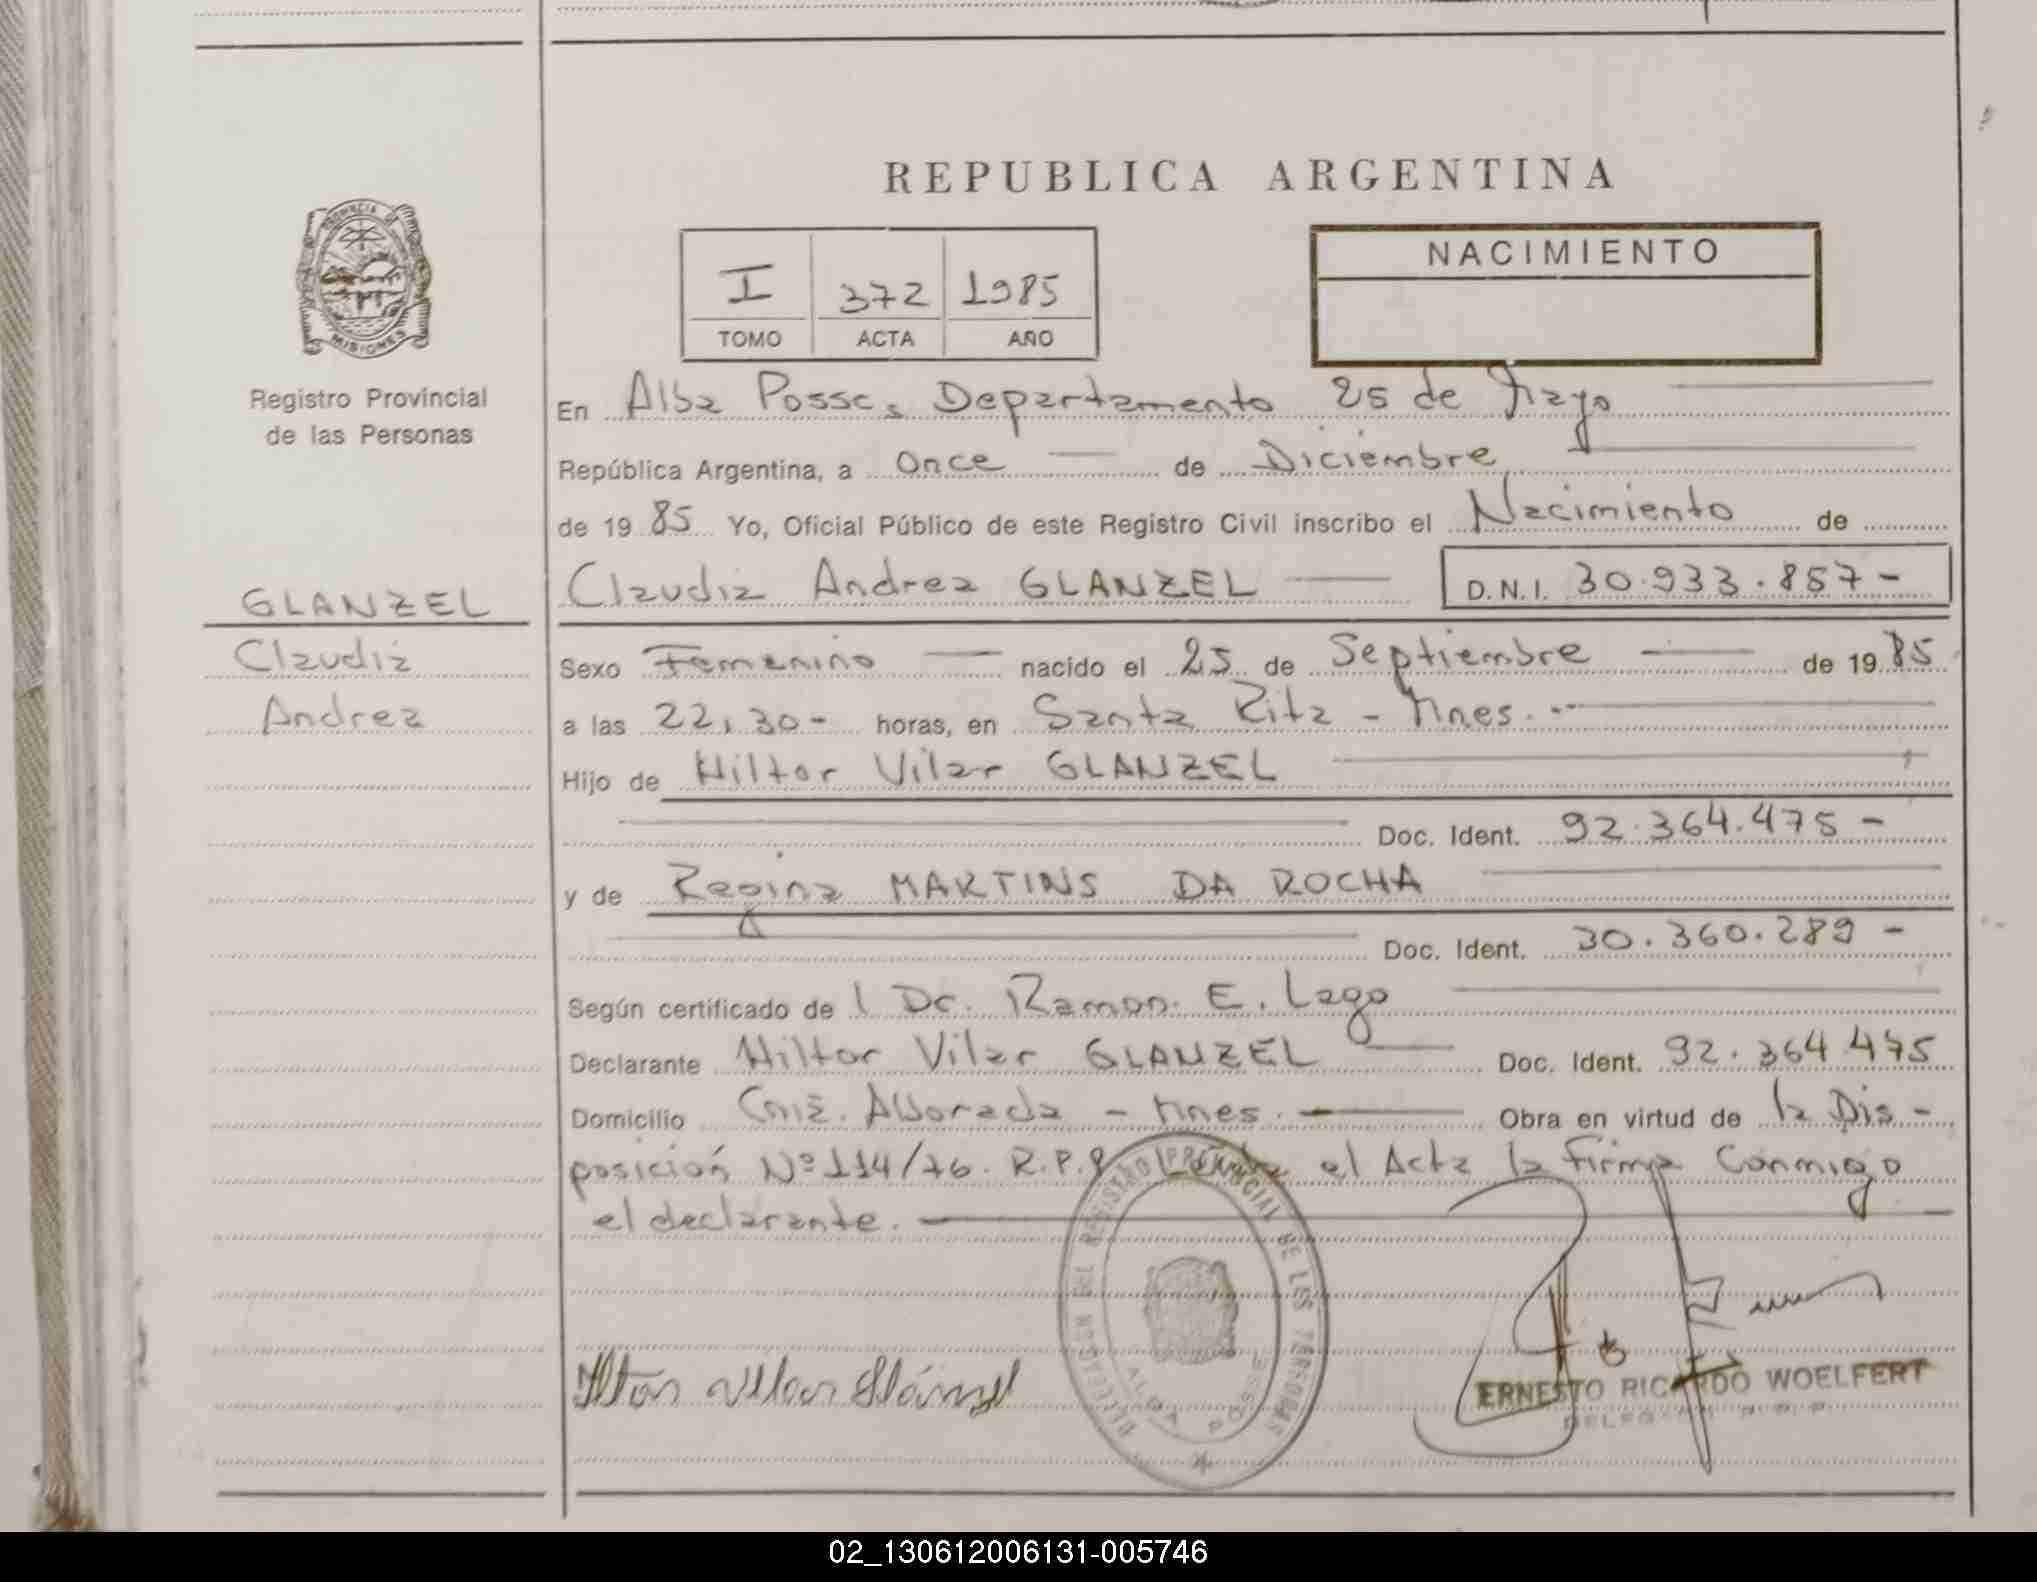 REPUBLICA ARGENTINA
PROVINCIA DE
MISIONES
Registro Provincial
de las Personas
I 372 1985
TOMO ACTA AÑO
NACIMIENTO
En Alba Posse, Departamento 25 de Mayo
República Argentina, a Once de Diciembre
de 1985 Yo, Oficial Público de este Registro Civil inscribo el Nacimiento de
Claudia Andrea GLANZEL D.N.I. 30.933.857-
GLANZEL
Claudia
Andrea
Sexo Femenino nacido el 25 de Septiembre de 1985
a las 22,30- horas, en Santa Rita - Mnes.
Hijo de Hiltor Vilar GLANZEL
Doc. Ident. 92.364.475-
y de Regina MARTINS DA ROCHA
Doc. Ident. 30.360.289-
Según certificado de l Dr. Ramon. E. Lago
Declarante Hiltor Vilar GLANZEL Doc. Ident. 92.364.475
Domicilio Cnia. Alborada - Mnes. Obra en virtud de la Dis-
posición Nº 114/76. R.P.P. el Acta la firma Conmigo
el declarante.
DELEGACION DEL REGISTRO PROVINCIAL DE LAS PERSONAS
ALBA POSSE
ERNESTO RICARDO WOELFERT
02_130612006131-005746